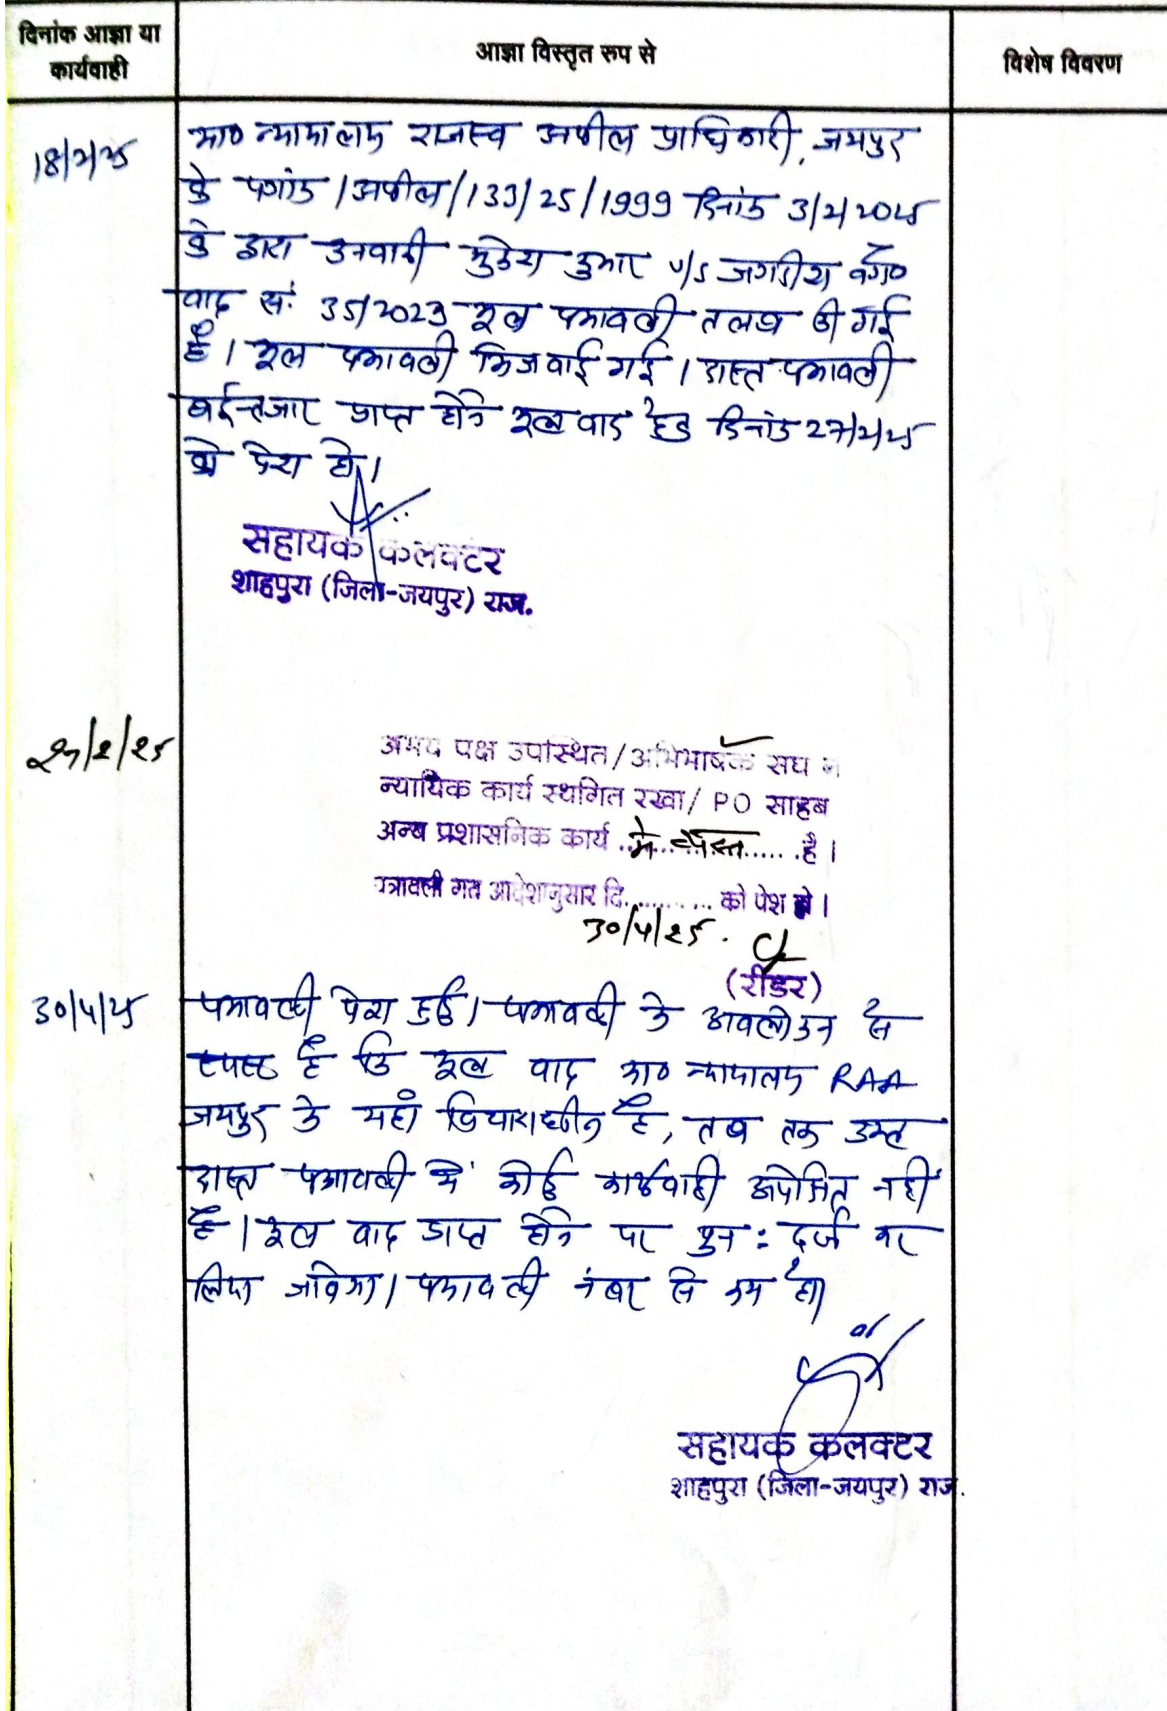 दिनांक आज्ञा या
कार्यवाही
आज्ञा विस्तृत रूप से
विशेष विवरण
18/2/25
मा० न्यायालय राजस्व अपील प्राधिकारी, जयपुर
के क्रमांक /अपील/133/25/1999 दिनांक 3/2/2025
के द्वारा उनवानी मुकेश कुमार v/s जगदीश वगै०
वाद सं. 35/2023 मूल पत्रावली तलब की गई
है। मूल पत्रावली भिजवाई गई। प्राप्त पत्रावली
बईन्तजार प्राप्त होने मूल वाद हेतु दिनांक 27/2/25
को पेश हो।
सहायक कलक्टर
शाहपुरा (जिला-जयपुर) राज.
27/2/25
उभय पक्ष उपस्थित/अभिभाषक संघ ने
न्यायिक कार्य स्थगित रखा/ PO साहब
अन्य प्रशासनिक कार्य में व्यस्त है।
पत्रावली गत आदेशानुसार दि. .......... को पेश हो।
30/4/25.
(रीडर)
30/4/25
पत्रावली पेश हुई। पत्रावली के अवलोकन से
स्पष्ट है कि मूल वाद मा० न्यायालय RAA
जयपुर के यहाँ विचाराधीन है, तब तक उक्त
प्राप्त पत्रावली में कोई कार्यवाही अपेक्षित नहीं
है। मूल वाद प्राप्त होने पर पुन: दर्ज कर
लिया जावेगा। पत्रावली नंबर से कम हो।
सहायक कलक्टर
शाहपुरा (जिला-जयपुर) राज.